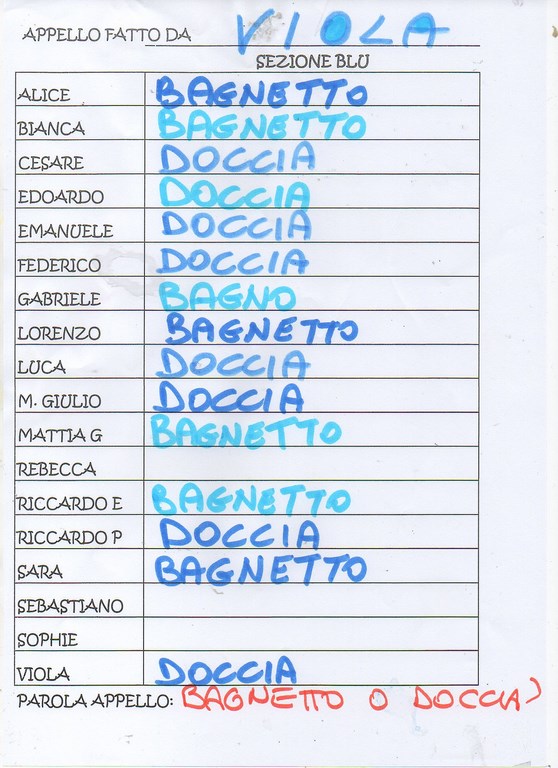 APPELLO FATTO DA VIOLA
SEZIONE BLU
ALICE BAGNETTO
BIANCA BAGNETTO
CESARE DOCCIA
EDOARDO DOCCIA
EMANUELE DOCCIA
FEDERICO DOCCIA
GABRIELE BAGNO
LORENZO BAGNETTO
LUCA DOCCIA
M. GIULIO DOCCIA
MATTIA G BAGNETTO
REBECCA
RICCARDO E BAGNETTO
RICCARDO P DOCCIA
SARA BAGNETTO
SEBASTIANO
SOPHIE
VIOLA DOCCIA
PAROLA APPELLO: BAGNETTO O DOCCIA)